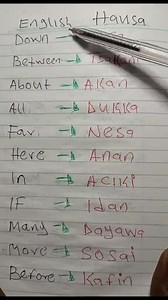 English Hausa
Down →
Between → Tsakani
About → Akan
All → Dukka
Far → Nesa
Here → Anan
In → Aciki
IF → Idan
Many → Dayawa
Move → Sosai
Before → Kafin